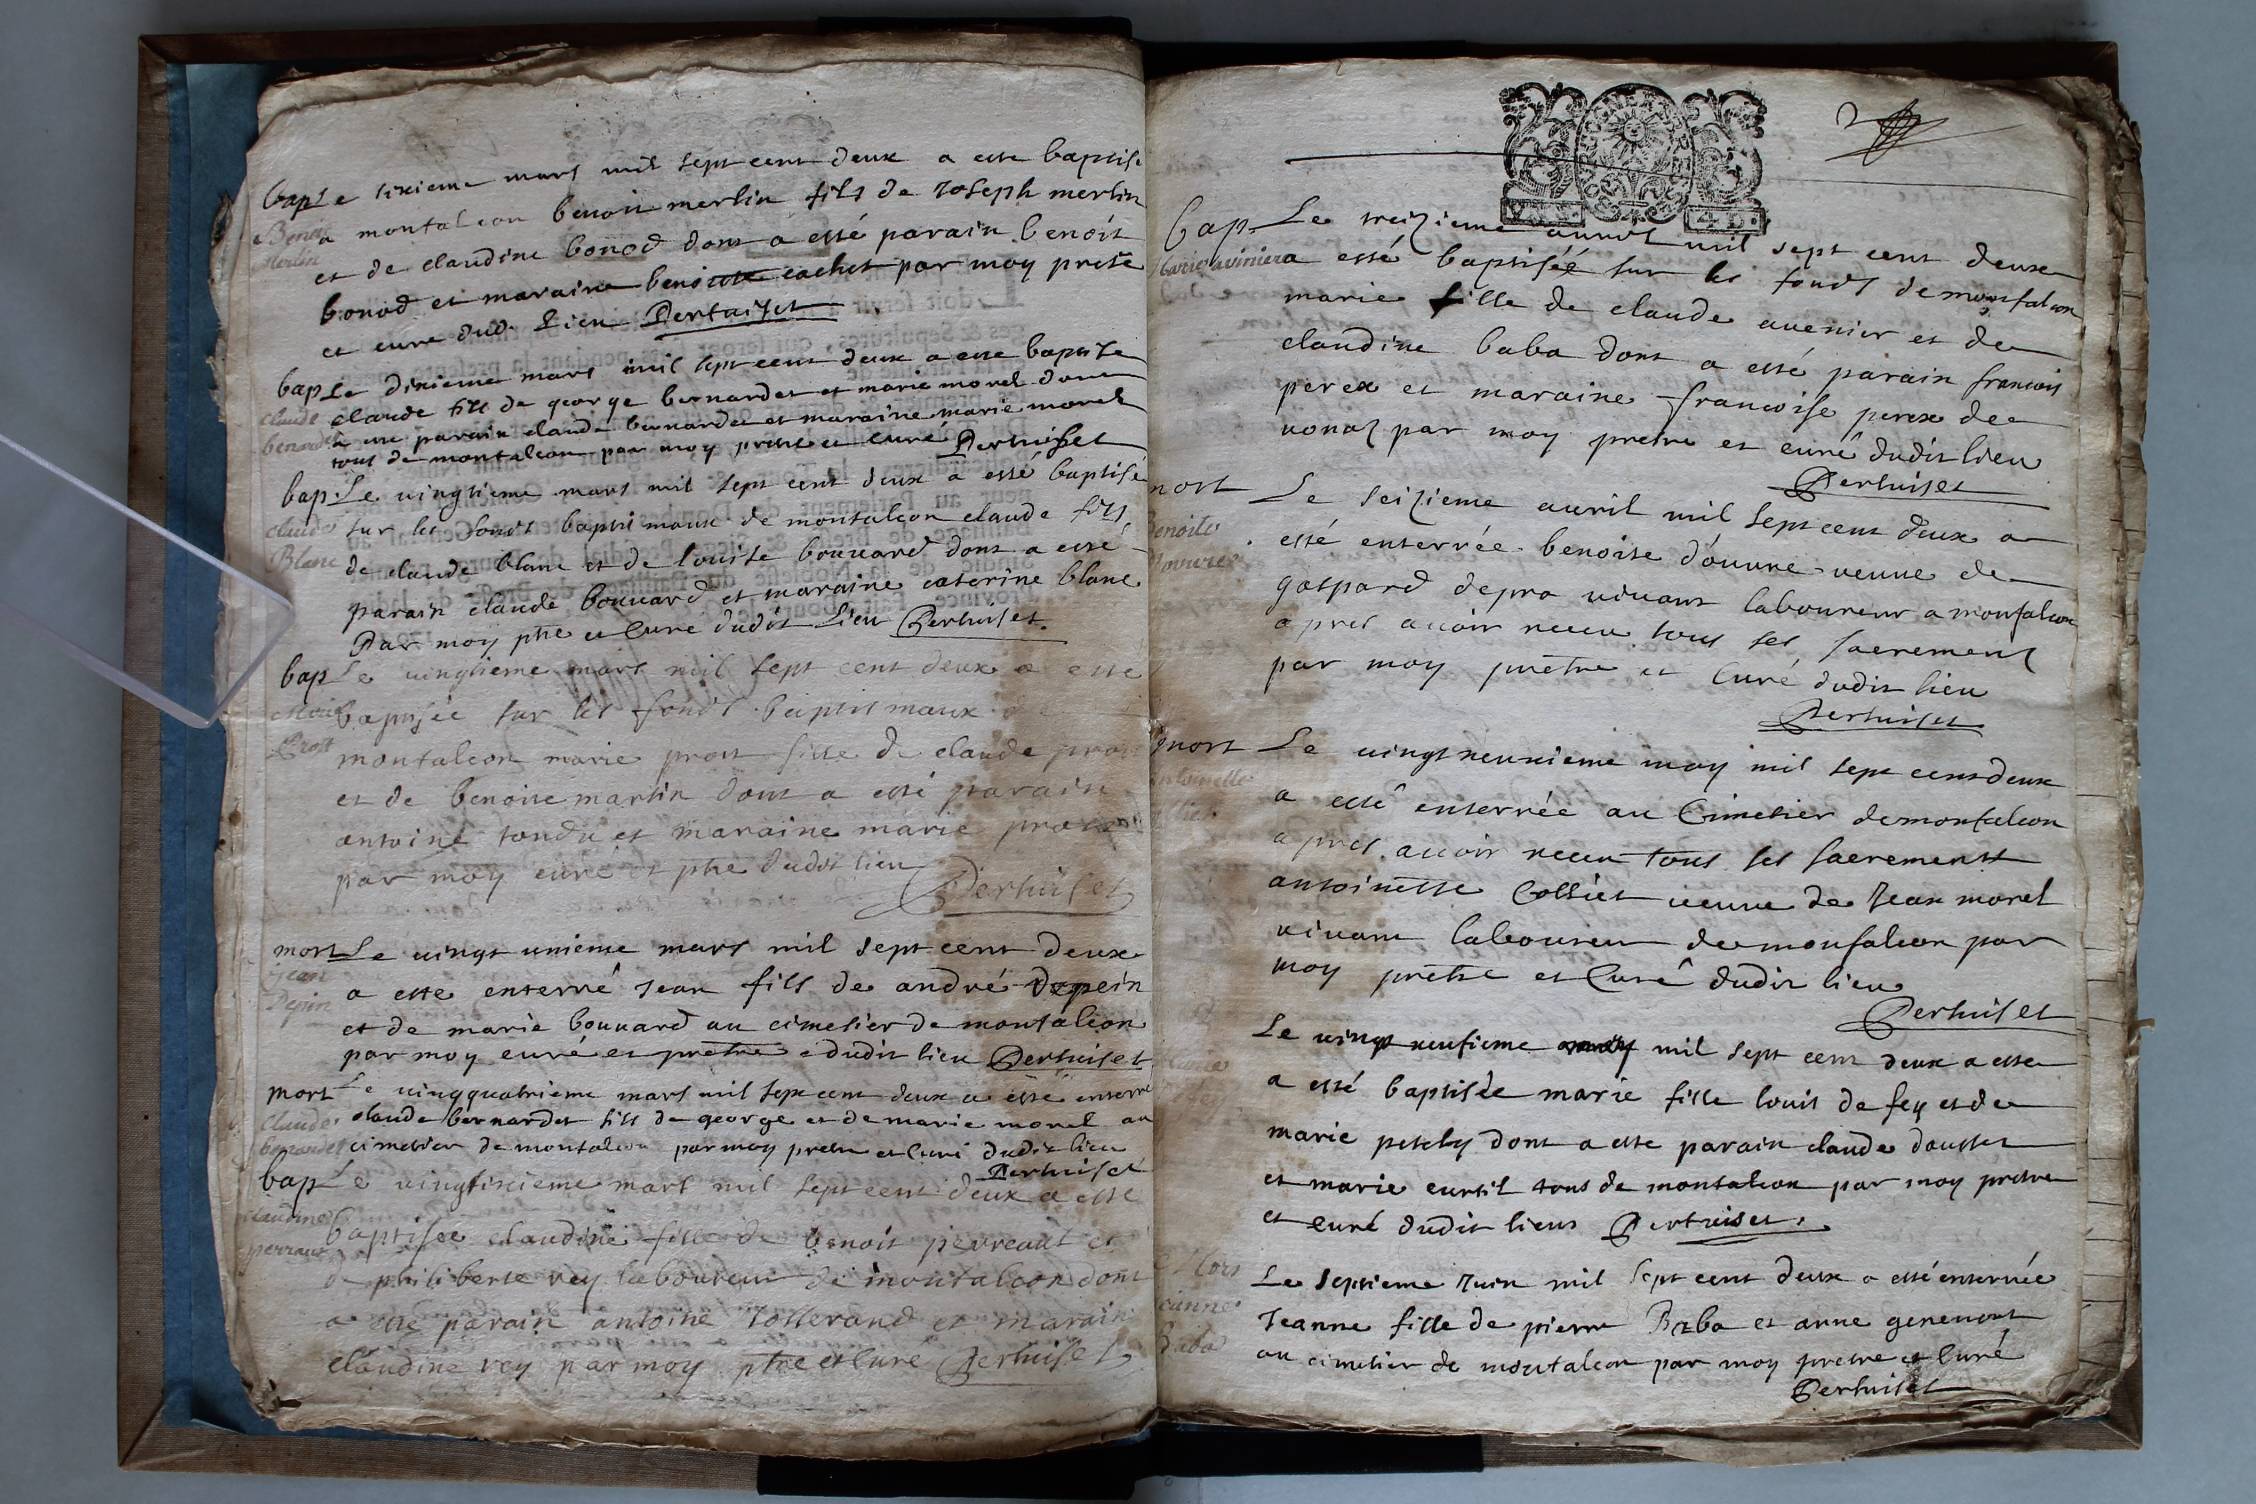 bap Le sixieme mars mil sept cent deux a este baptise
Benoit
Merlin
a montalcon benoit merlin fils de Joseph merlin
et de claudine bonod dont a esté parain benoit
bonod et maraine benoitte cachet par moy pretre
et cure dud. Lieu Pertuiset
bap Le dixieme mars mil sept cent deux a este baptise
claude
bernardet
claude fils de george bernardet et marie morel dont
a este parain claude bernardet et maraine marie morel
tous de montalcon par moy pretre et curé Pertuisset
bap. Le vingtieme mars mil sept cent deux a esté baptisé
claude
Blanc
sur les fonds baptismaux de montalcon claude fils
de claude blanc et de louise bouvard dont a esté
parain claude bouvard et maraine caterine blanc
Par moy ptre et Cure dudit Lieu Pertuiset.
bap Le vingtieme mars mil sept cent deux a este
Marie
Prost
baptisée sur les fonds baptismaux de
montalcon marie prost fille de claude prost
et de benoite martin dont a esté parain
antoine tondu et maraine marie prost
par moy curé et ptre dudit lieu
Pertuiset
mort Le vingt unieme mars mil sept cent deux
jean
Depin
a este enterré jean fils de andré depein
et de marie bouvard au cimetier de montalcon
par moy curé et pretre dudit lieu Pertuiset
mort Le vingquatrieme mars mil sept cent deux a esté enterré
claude
bernardet
claude bernardet fils de george et de marie morel au
cimetier de montalcon par moy pretre et curé dudit lieu
Pertuiset
bap Le vingtsixieme mars mil sept cent deux a este
claudine
perraut
baptisée claudine fille de benoit perreaut et
de philiberte rey laboureur de montalcon dont
a este parain antoine tosserand et marain
claudine rey par moy ptre et Curé Pertuiset
2
VN S.
4 D.
bap. Le treizieme avril mil sept cent deux
Marie avinier
a esté baptisée sur les fonds de monfalcon
marie fille de claude avenier et de
claudine baba dont a esté parain francois
perex et maraine francoise perex de
vonaz par moy pretre et curé dudit lieu
Pertuiset
mort Le seizieme avril mil sept cent deux a
Benoite
Douvre
esté enterrée benoite d'ouvre veuve de
gaspard depra vivant laboureur a monfalcon
apres avoir receu tous ses sacrement
par moy pretre et Curé dudit lieu
Pertuiset
mort Le vingt neuxieme may mil sept cent deux
antoinette
a esté enterrée au Cimetier de monfalcon
apres avoir receu tous ses sacrements
antoinette Colliet veuve de Jean morel
vivant laboureur de monfalcon par
moy pretre et Curé dudit lieu
Pertuiset
Le vingt neufieme may mil sept cent deux a este
a esté baptisée marie fille louis de fey et de
marie petely dont a este parain claude dousset
et marie curtil tous de montalcon par moy pretre
et curé dudit lieux Pertuiset.
Mort
Jeanne
Baba
Le septieme Juin mil sept cent deux a esté enterrée
Jeanne fille de pierre Baba et anne genevont
au cimetier de montalcon par moy pretre et Curé
Pertuiset